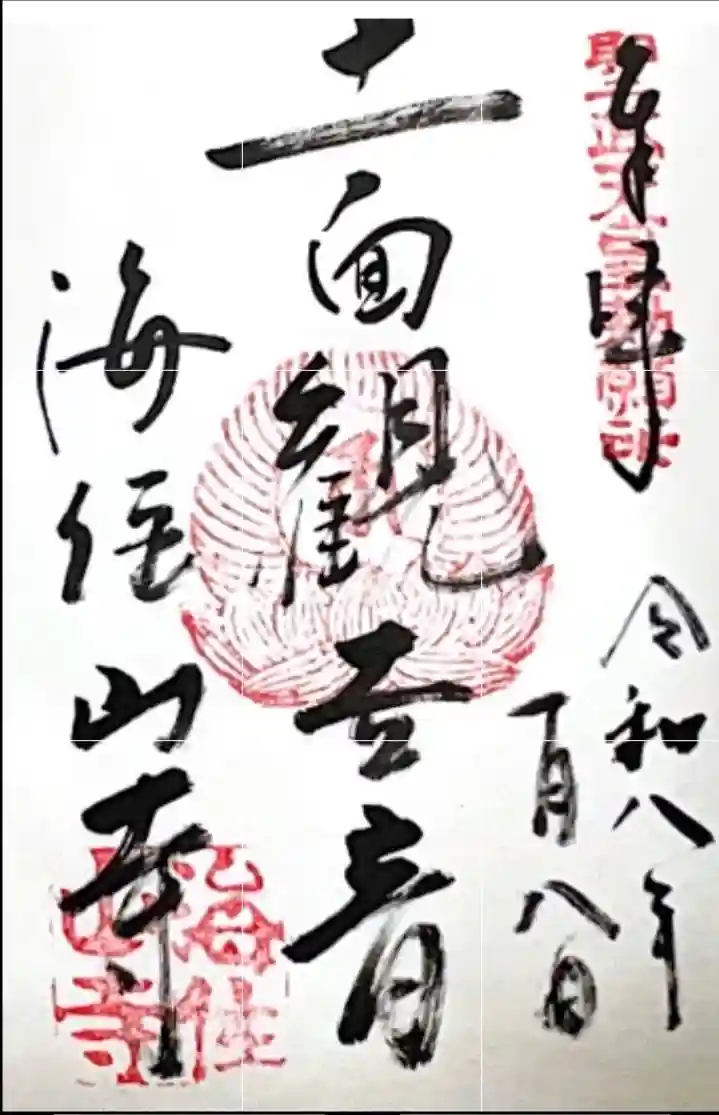 聖武天皇勅願所
奉拝
令和八年
一月八日
十一面観世音
海住山寺
海住山寺